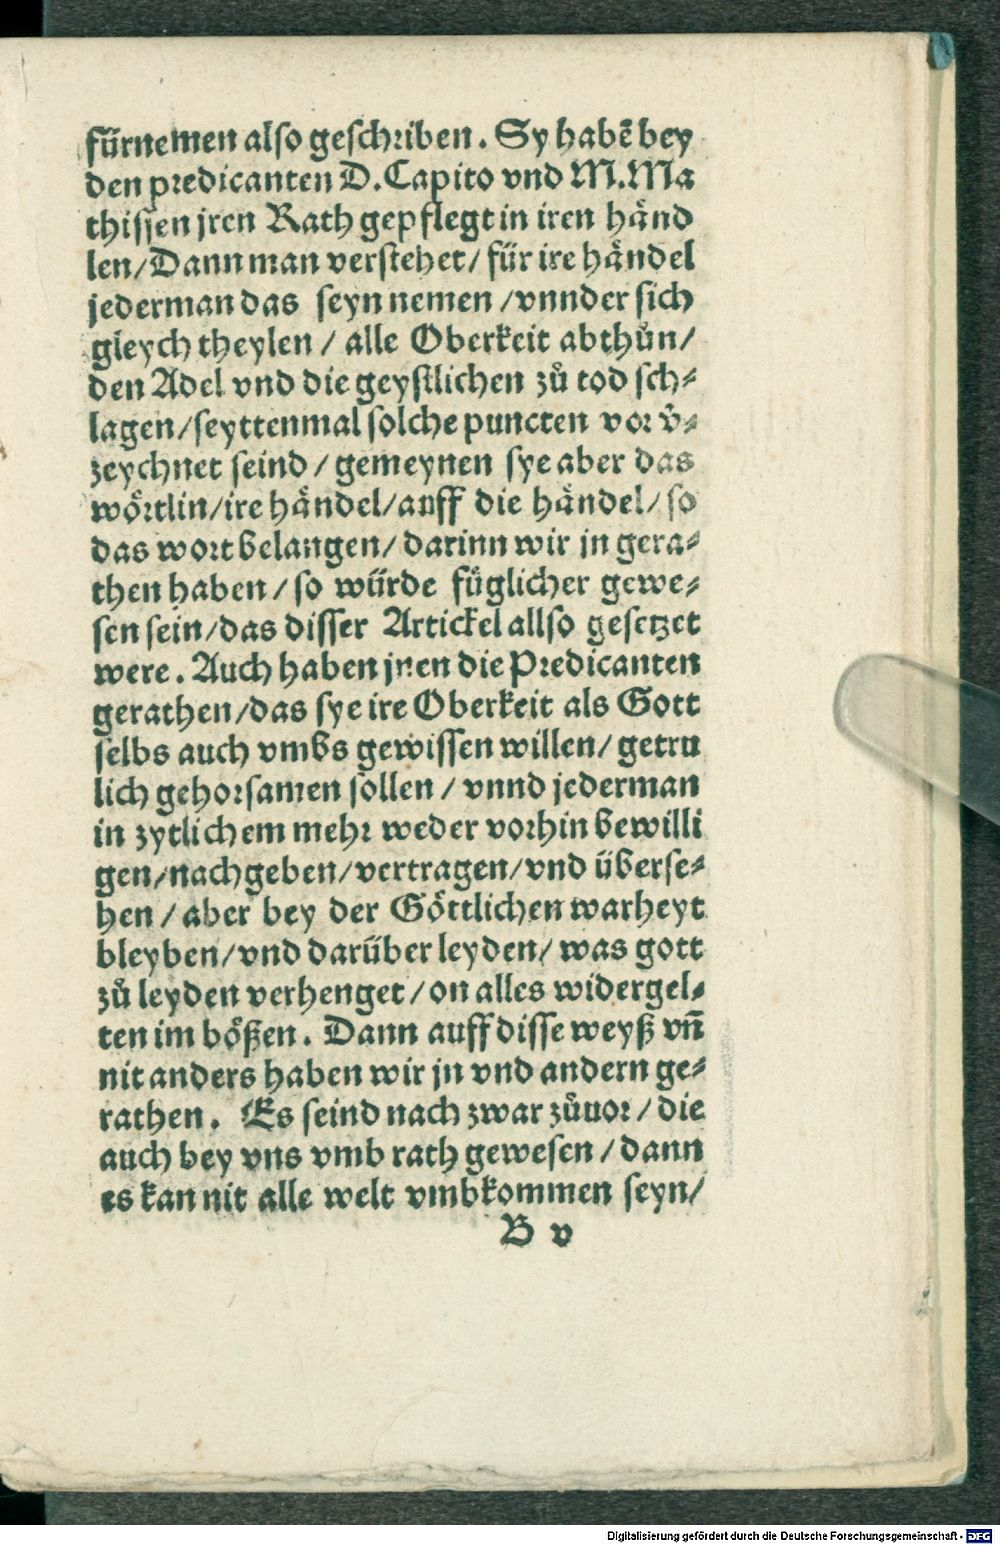 fürnemen also geschriben. Sy habē bey
den predicanten D. Capito vnd M. Ma
thissen jren Rath gepflegt in iren händ
len/Dann man verstehet/ für ire händel
jederman das seyn nemen /vnnder sich
gleych theylen / alle Oberkeit abthůn/
den Adel vnd die geystlichen zů tod sch⸗
lagen/seyttenmal solche puncten vor v̄⸗
zeychnet seind / gemeynen sye aber das
wörtlin/ire händel/auff die händel/ so
das wort belangen/ darinn wir jn gera⸗
then haben / so würde füglicher gewe⸗
sen sein/das disser Artickel allso gesetzet
were. Auch haben jnen die Predicanten
gerathen/das sye ire Oberkeit als Gott
selbs auch vmbs gewissen willen/ getru
lich gehorsamen sollen / vnnd jederman
in zytlichem mehr weder vorhin bewilli
gen/nachgeben/vertragen/vnd überse⸗
hen / aber bey der Göttlichen warheyt
bleyben/vnd darüber leyden/ was gott
zů leyden verhenget / on alles widergel⸗
ten im bößen. Dann auff disse weyß vñ
nit anders haben wir jn vnd andern ge⸗
rathen. Es seind nach zwar zůuor / die
auch bey vns vmb rath gewesen / dann
es kan nit alle welt vmbkommen seyn/
B v
Digitalisierung gefördert durch die Deutsche Forschungsgemeinschaft - DFG